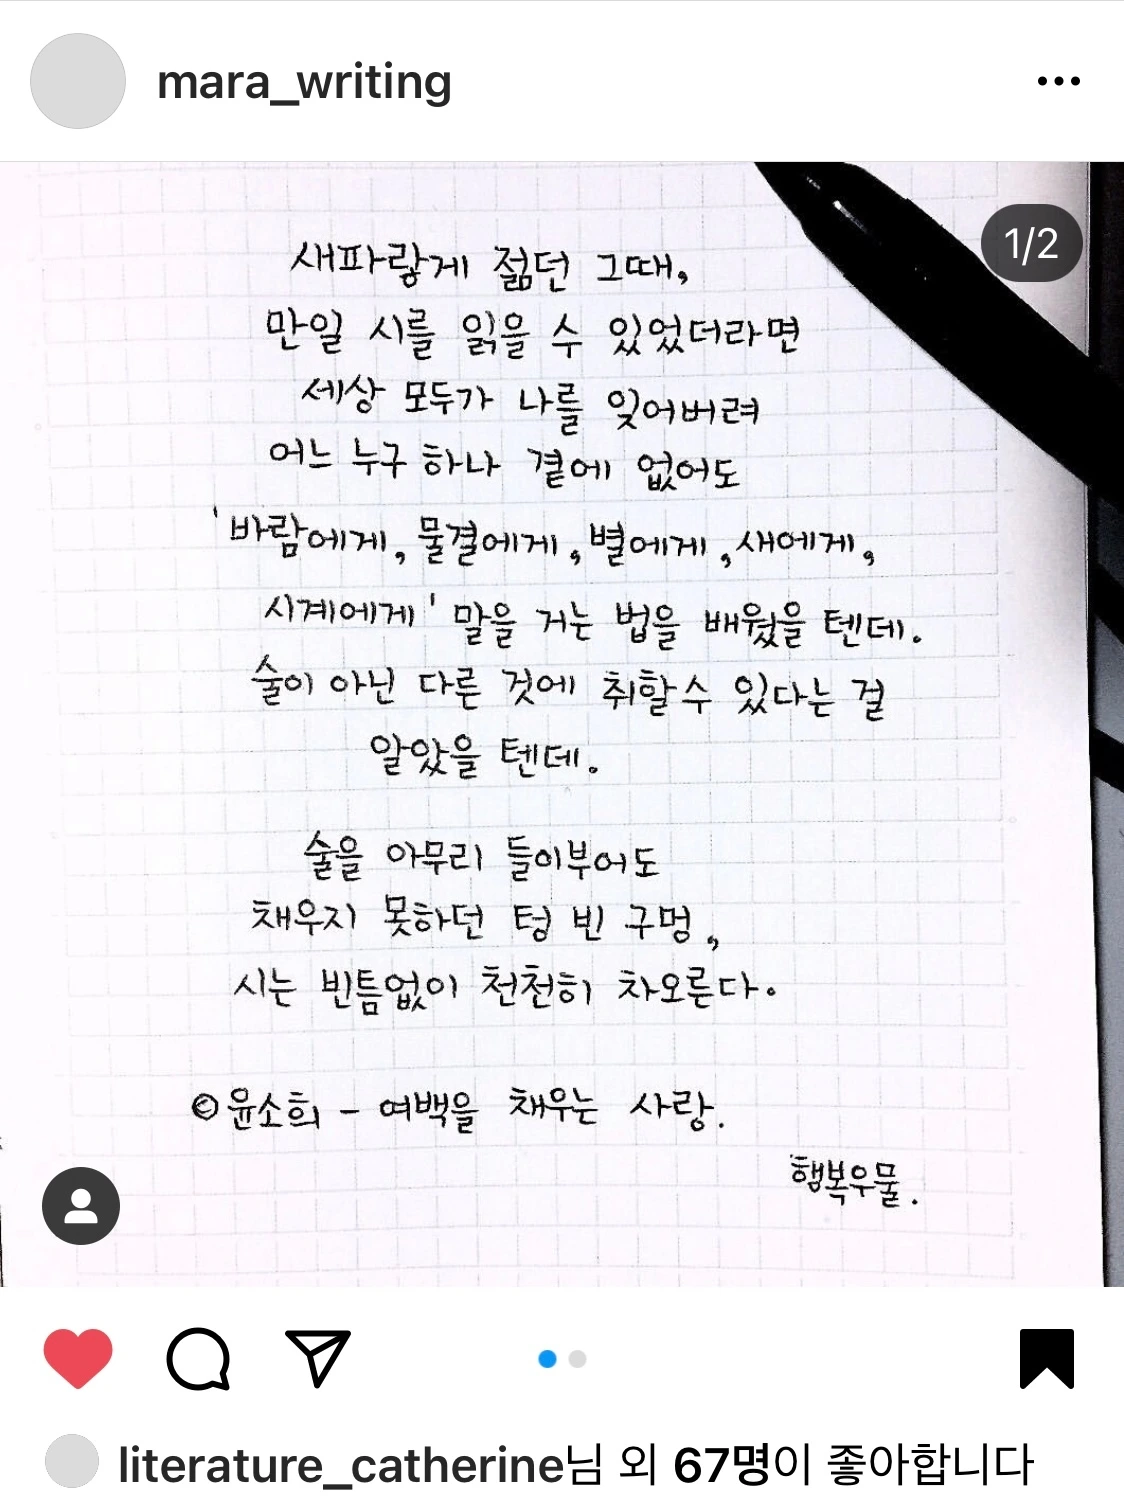 mara_writing
1/2
새파랗게 젊던 그때,
만일 시를 읽을 수 있었더라면
세상 모두가 나를 잊어버려
어느 누구 하나 곁에 없어도
'바람에게, 물결에게, 별에게, 새에게,
시계에게' 말을 거는 법을 배웠을 텐데.
술이 아닌 다른 것에 취할 수 있다는 걸
알았을 텐데.
술을 아무리 들이부어도
채우지 못하던 텅 빈 구멍,
시는 빈틈없이 천천히 차오른다.
©윤소희 - 여백을 채우는 사랑.
행복우물.
literature_catherine님 외 67명이 좋아합니다